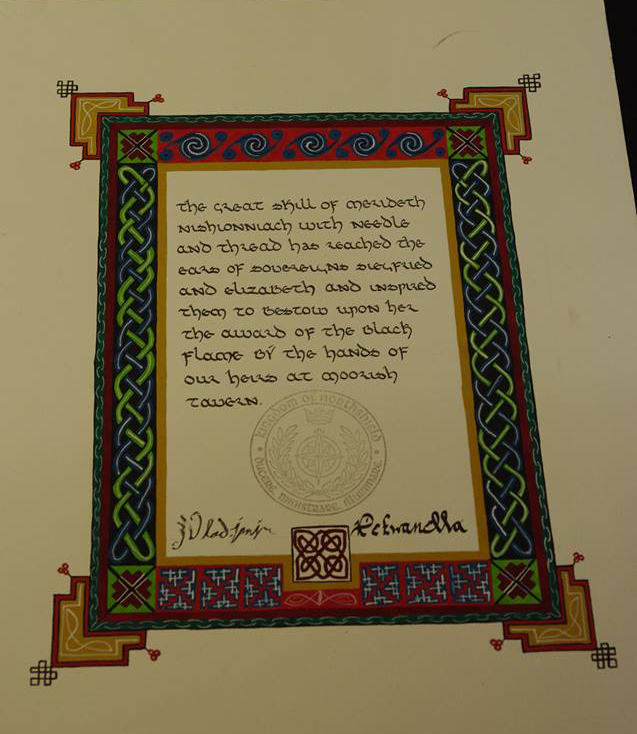 the great skill of merideth
nishionniach with needle
and thread has reached the
ears of sovereigns siegfried
and elizabeth and inspired
them to bestow upon her
the award of the black
flame bÿ the hands of
our heirs at moorish
tavern.
kingdom of northshield
ducere monstrare illuminare
Vladimir Petranella